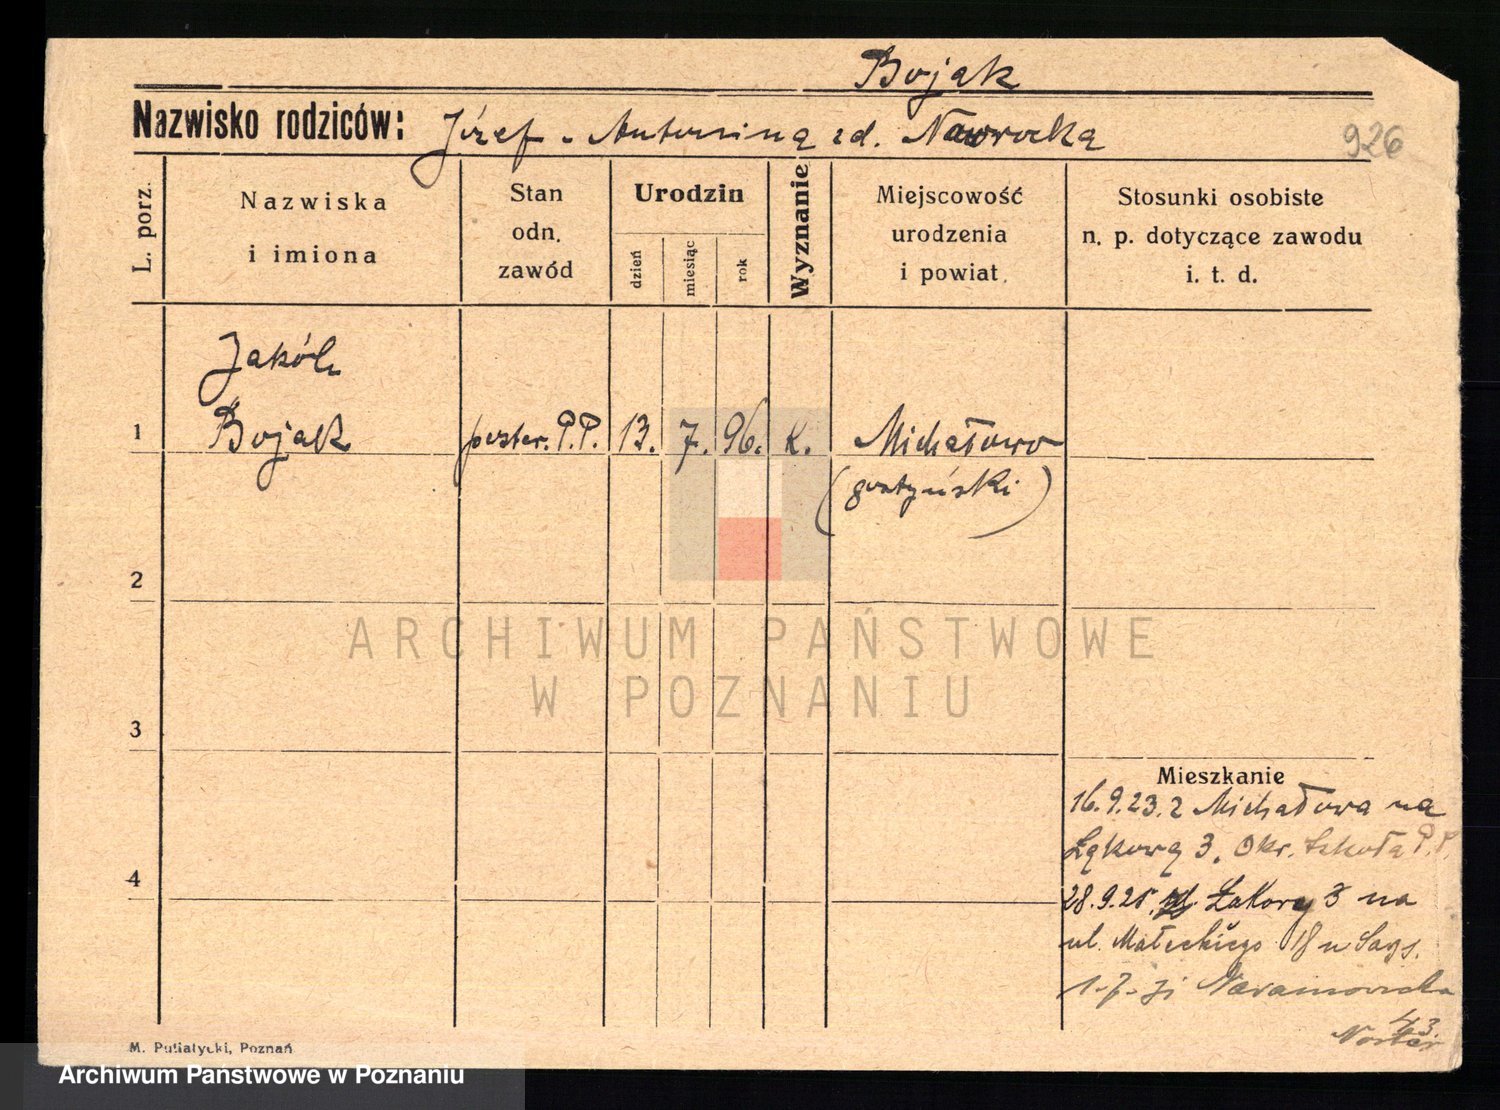 Bojak
Nazwisko rodziców: Józef - Antonina zd. Nawrocka
926
L. porz.
Nazwiska
i imiona
Stan
odn.
zawód
Urodzin
dzień
miesiąc
rok
Wyznanie
Miejscowość
urodzenia
i powiat
Stosunki osobiste
n. p. dotyczące zawodu
i. t. d.
Jakób
1 Bojak poster. P.P. 13. 7. 96. k. Michałowo
(gostyński)
2
ARCHIWUM PAŃSTWOWE
W POZNANIU
3
Mieszkanie
16.9.23. z Michałowa na
Łąkową 3. Okr. Szkoła P.P.
4
28.9.25. Łakowej 3 na
ul. Małeckiego 18 u
Naramowicka
43.
M. Putiatycki, Poznań
Archiwum Państwowe w Poznaniu